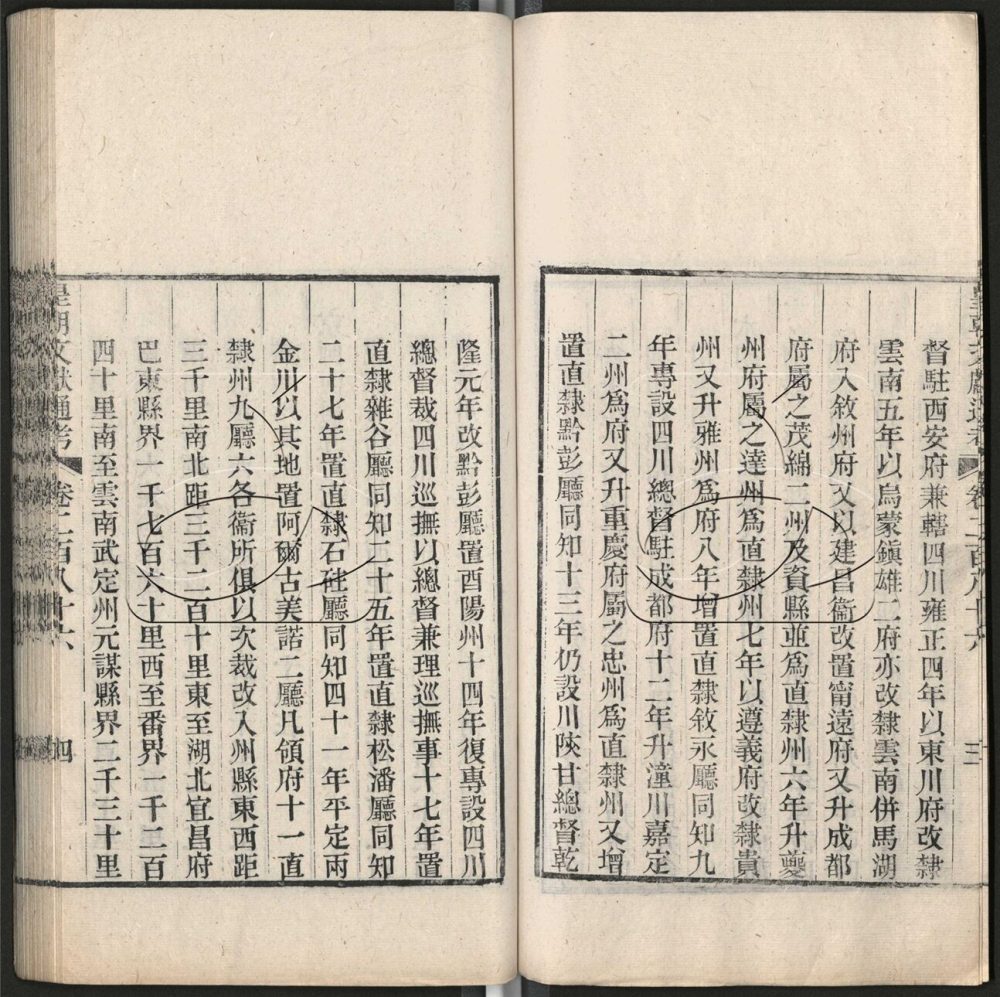 督駐西安府兼轄四川雍正四年以東川府改隸
雲南五年以烏蒙鎮雄二府亦改隸雲南併馬湖
府入敘州府又以建昌衞改置甯遠府又升成都
府屬之茂綿二州及資縣並爲直隸州六年升夔
州府屬之達州爲直隸州七年以遵義府改隸貴
州又升雅州爲府八年增置直隸敘永廳同知九
年專設四川總督駐成都府十二年升潼川嘉定
二州爲府又升重慶府屬之忠州爲直隸州又增
置直隸黔彭廳同知十三年仍設川陝甘總督乾
隆元年改黔彭廳置酉陽州十四年復專設四川
總督裁四川巡撫以總督兼理巡撫事十七年置
直隸雜谷廳同知二十五年置直隸松潘廳同知
二十七年置直隸石砫廳同知四十一年平定兩
金川以其地置阿爾古美諾二廳凡領府十一直
隸州九廳六各衞所俱以次裁改入州縣東西距
三千里南北距三千二百十里東至湖北宜昌府
巴東縣界一千七百六十里西至番界一千二百
四十里南至雲南武定州元謀縣界二千三十里
皇朝文獻通考 卷二百八十六 四